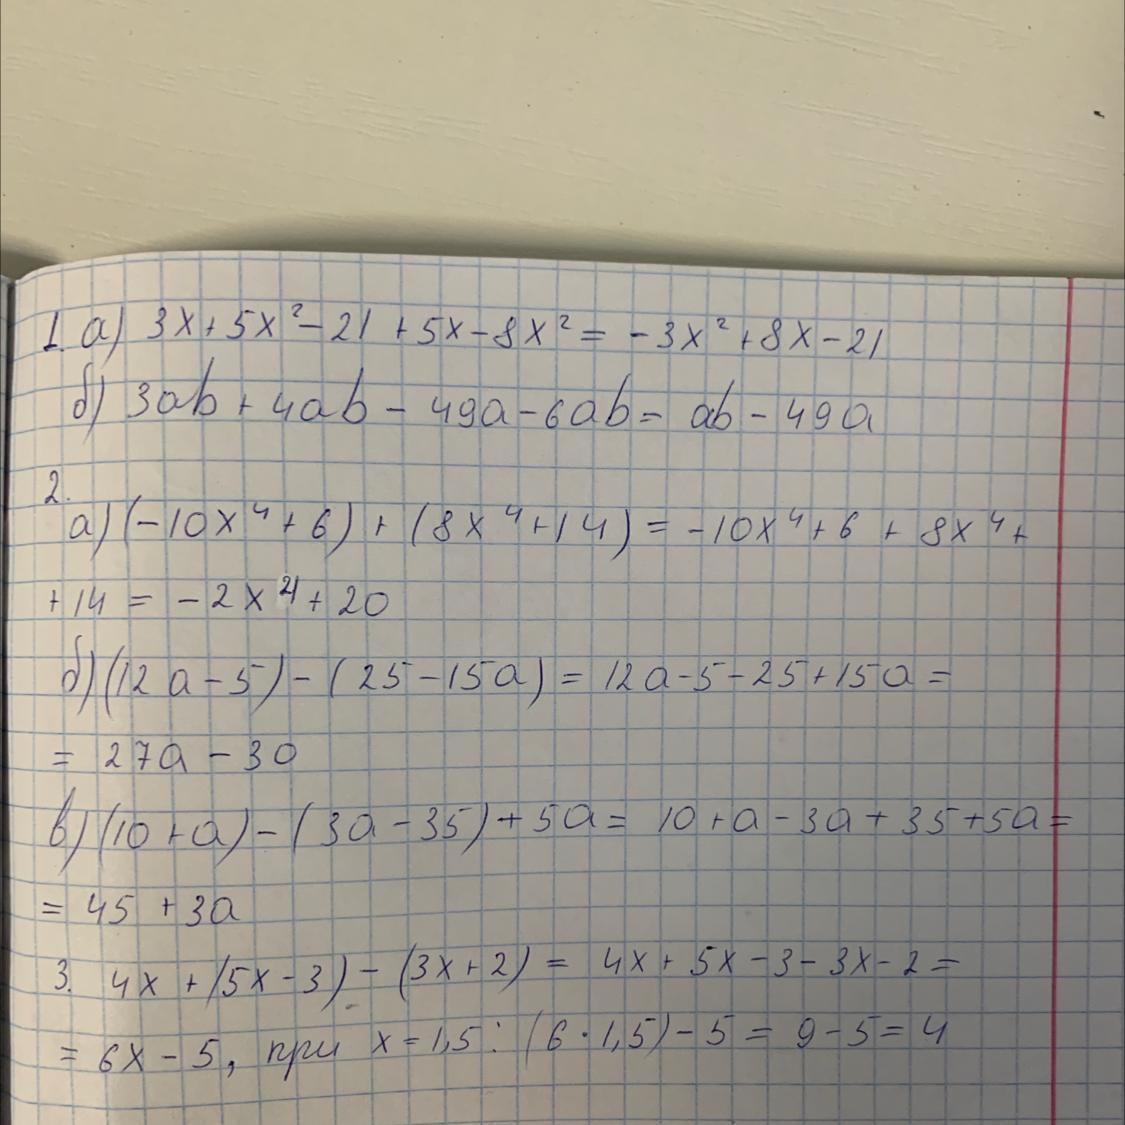 1. а) 3x + 5x² - 21 + 5x - 8x² = - 3x² + 8x - 21
б) 3ab + 4ab - 49a - 6ab = ab - 49a
2.
а) (-10x⁴ + 6) + (8x⁴ + 14) = -10x⁴ + 6 + 8x⁴ +
+ 14 = - 2x⁴ + 20
б) (12a - 5) - (25 - 15a) = 12a - 5 - 25 + 15a =
= 27a - 30
в) (10 + a) - (3a - 35) + 5a = 10 + a - 3a + 35 + 5a =
= 45 + 3a
3. 4x + (5x - 3) - (3x + 2) = 4x + 5x - 3 - 3x - 2 =
= 6x - 5, при x = 1,5 : (6 · 1,5) - 5 = 9 - 5 = 4